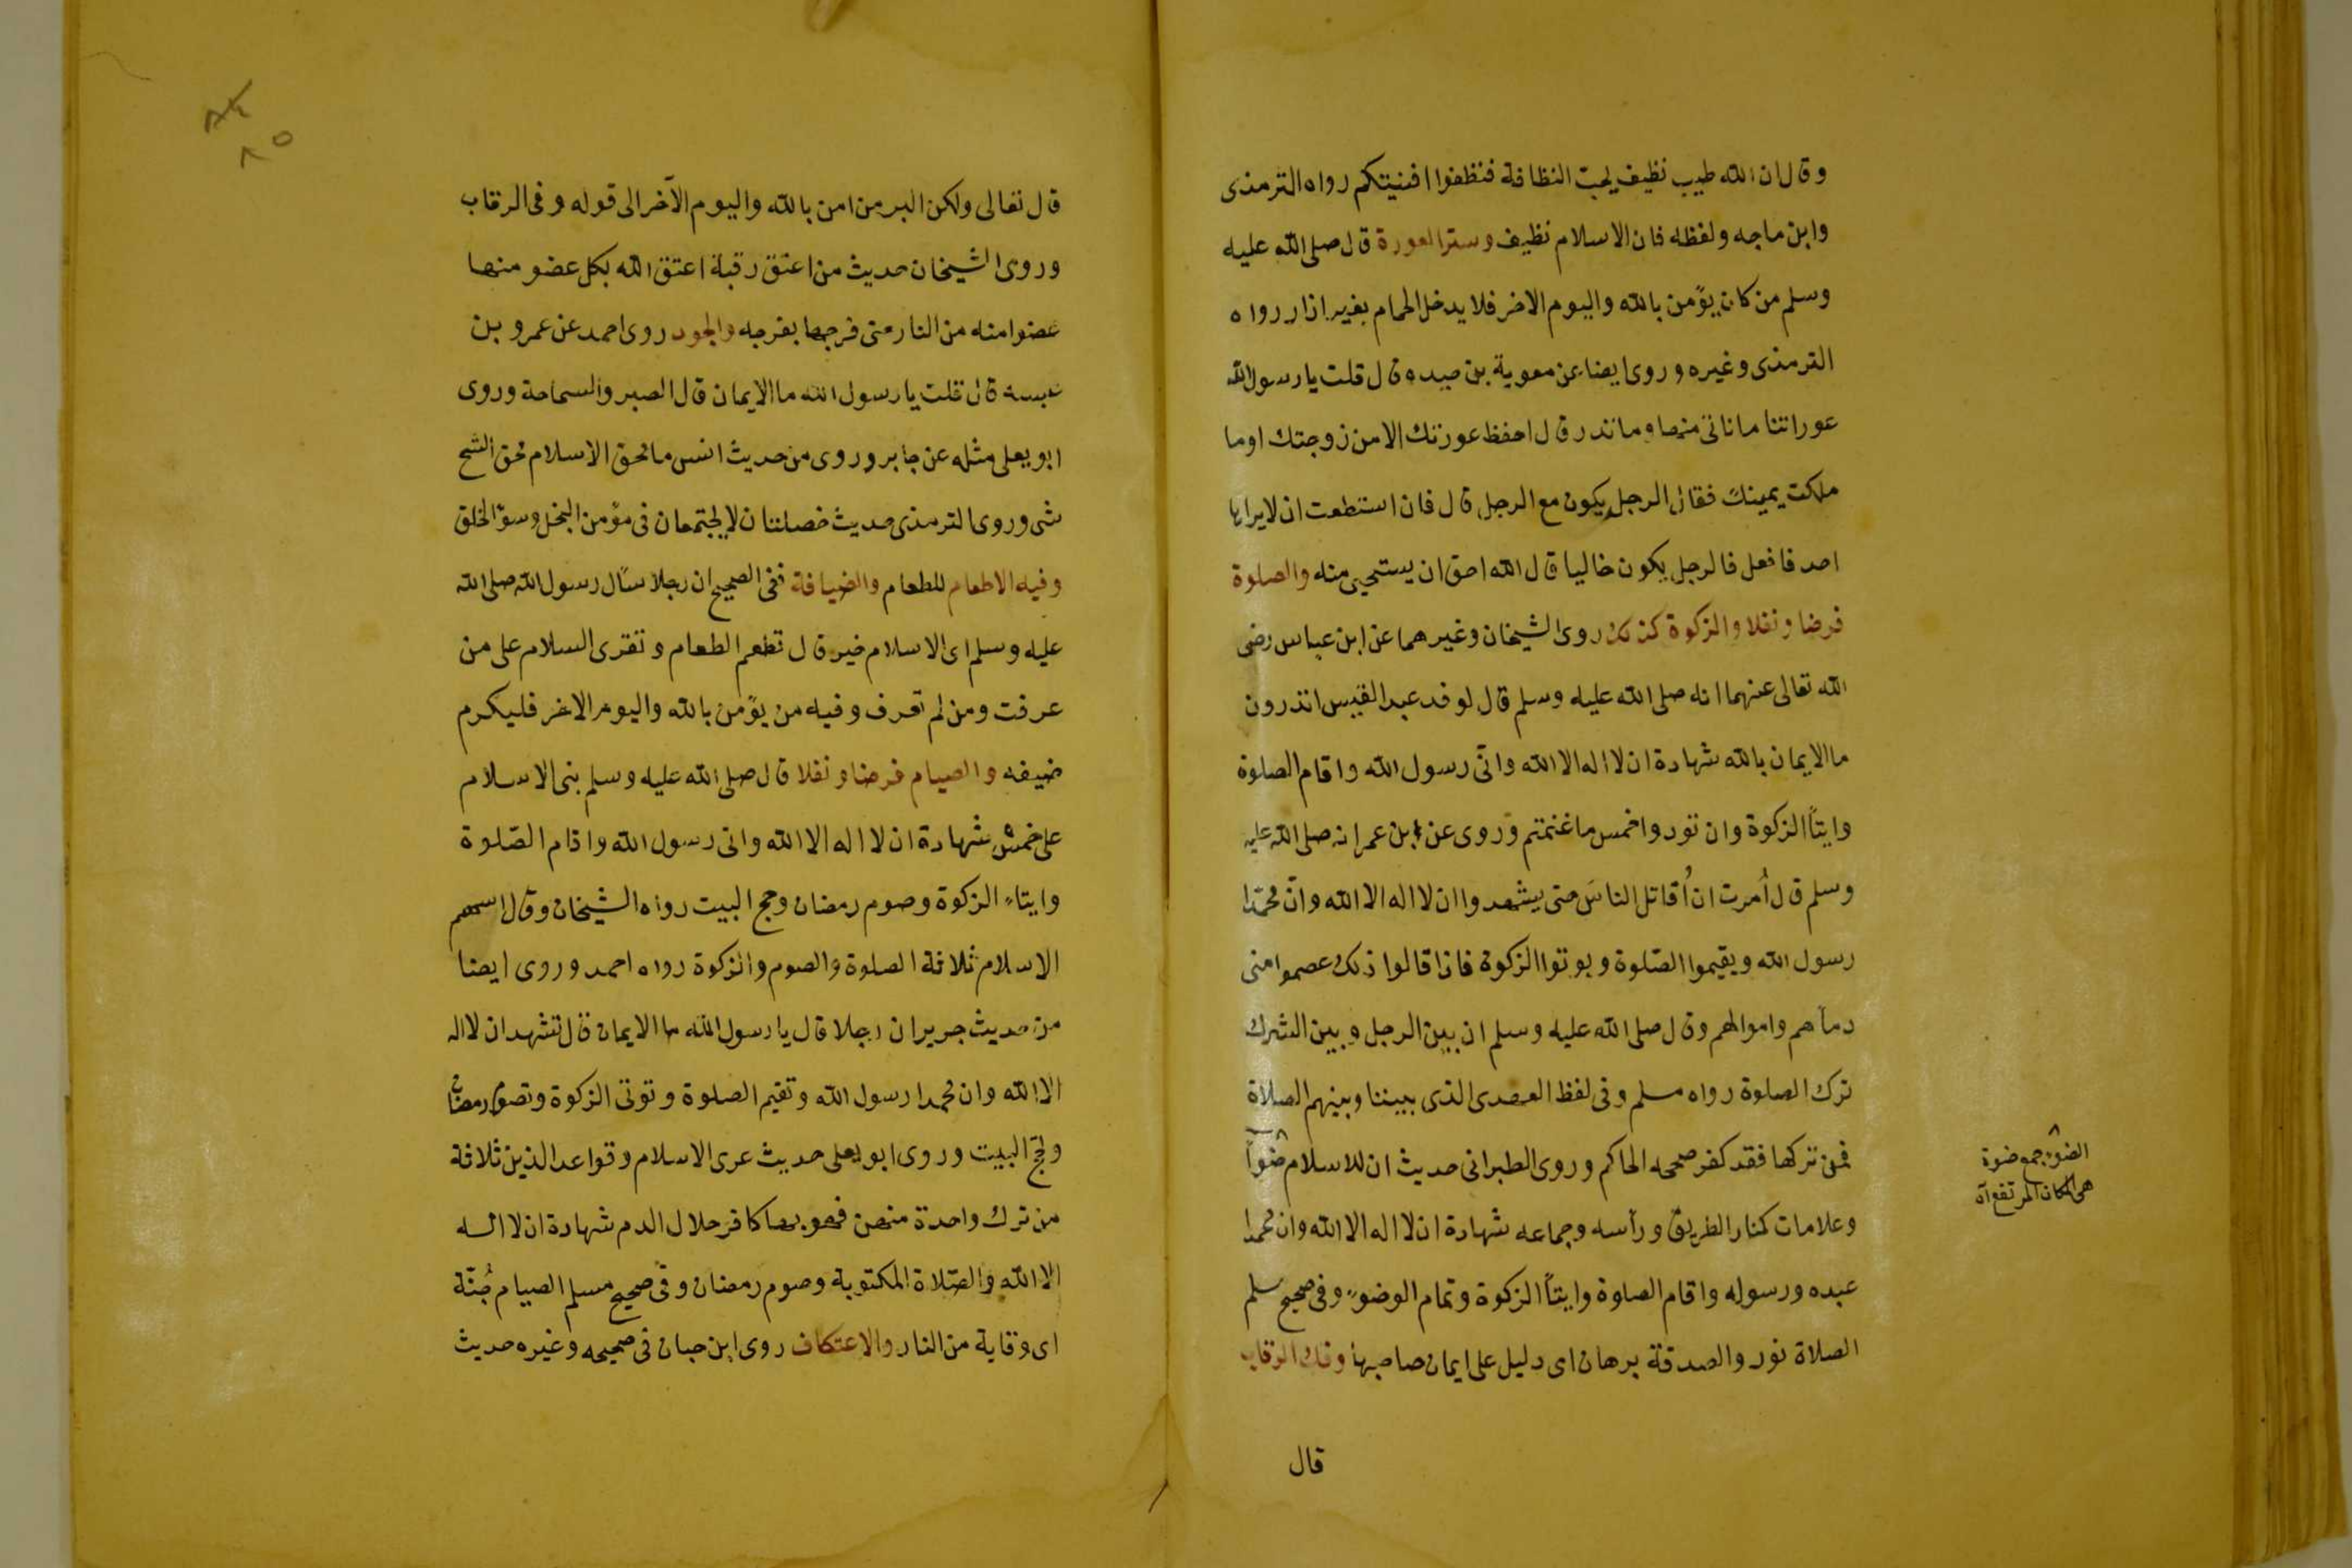 وقال ان الله طيب نظيف يحب النظافة فنظفوا افنيتكم رواه الترمذى
وابن ماجه ولفظه فان الاسلام نظيف وستر العورة قال صلى الله عليه
وسلم من كان يؤمن بالله واليوم الاخر فلا يدخل الحمام بغير ازار رواه
الترمذى وغيره وروى ايضا عن معوية بن حيده قال قلت يا رسول الله
عوراتنا ما ناتى منها وما نذر قال احفظ عورتك الا من زوجتك او ما
ملكت يمينك فقال الرجل يكون مع الرجل قال فان استطعت ان لا يراها
احد فافعل فالرجل يكون خاليا قال الله احق ان يستحيى منه والصلوة
فرضا ونفلا والزكوة كذلك روى الشيخان وغيرهما عن ابن عباس رضى
الله تعالى عنهما انه صلى الله عليه وسلم قال لوفد عبد القيس اتدرون
ما الايمان بالله شهادة ان لا اله الا الله وانى رسول الله واقام الصلوة
وايتآ الزكوة وان تودوا خمس ما غنمتم وروى عن ابن عمر انه صلى الله عليه
وسلم قال اُمرت ان اُقاتل الناسَ حتى يشهدوا ان لا اله الا الله وانّ محمّدا
رسول الله ويقيموا الصّلوة ويوتوا الزكوة فاذا قالوا ذلك عصموا منى
دمآهم واموالهم وقال صلى الله عليه وسلم ان بين الرجل وبين الشرك
ترك الصلوة رواه مسلم وفى لفظ العهدى الذى بيننا وبينهم الصلاة
فمن تركها فقد كفر صححه الحاكم وروى الطبرانى حديث ان للاسلام ضُوآ
وعلامات كمنار الطريق ورآسه وجماعه شهادة ان لا اله الا الله وان محمدا
عبده ورسوله واقام الصلوة وايتآ الزكوة وتمام الوضوء وفى صحيح مسلم
الصلاة نور والصدقة برهان اى دليل على ايمان صاحبها وفك الرقاب
قال
الضوُ جمع ضوة
هى المكان المرتفع اه
٨٥
قال تعالى ولكن البر من امن بالله واليوم الآخر الى قوله وفى الرقاب
وروى الشيخان حديث من اعتق رقبة اعتق الله بكل عضو منها
عضوا منه من النار حتى فرجها بفرجه والجود روى احمد عن عمرو بن
عبسه قال قلت يا رسول الله ما الايمان قال الصبر والسماحة وروى
ابو يعلى مثله عن جابر وروى من حديث انس ما محق الاسلام محق الشح
شى وروى الترمذى حديث خصلتان لا يجتمعان فى مؤمن البخل وسوّ الخلق
وفيه الاطعام للطعام والضيافة ففى الصحيح ان رجلا سأل رسول الله صلى الله
عليه وسلم اى الاسلام خير قال تطعم الطعام وتقرى السلام على من
عرفت ومن لم تعرف وفيه من يؤمن بالله واليوم الاخر فليكرم
ضيفه والصيام فرضا ونفلا قال صلى الله عليه وسلم بنى الاسلام
على خمس شهادة ان لا اله الا الله وانى رسول الله واقام الصّلوة
وايتاء الزكوة وصوم رمضان وحج البيت رواه الشيخان وقال اسهم
الاسلام ثلاثة الصلوة والصوم والزكوة رواه احمد وروى ايضا
من حديث جرير ان رجلا قال يا رسول الله ما الايمان قال تشهد ان لا اله
الا الله وان محمدا رسول الله وتقيم الصلوة وتوتى الزكوة وتصوم رمضان
وتحجّ البيت وروى ابو يعلى حديث عرى الاسلام وقواعد الدين ثلاثة
من ترك واحدة منهن فهو بها كافر حلال الدم شهادة ان لا اله
الا الله والصّلاة المكتوبة وصوم رمضان وفى صحيح مسلم الصيام جُنّة
اى وقاية من النار والاعتكاف روى ابن حبان فى صحيحه وغيره حديث